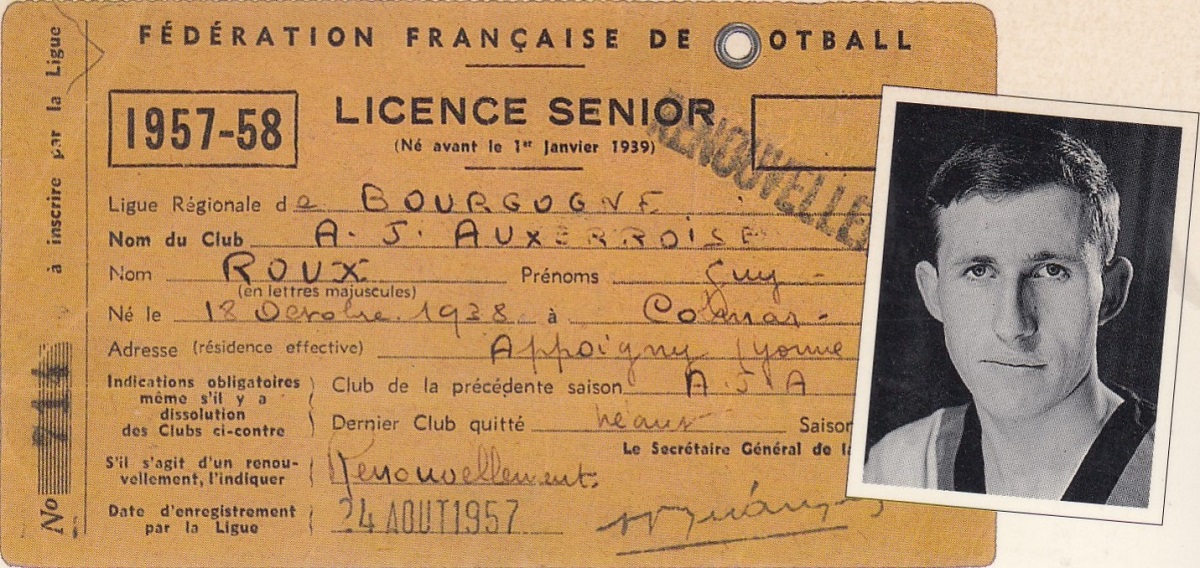 FÉDÉRATION FRANÇAISE DE OTBALL
1957-58
LICENCE SENIOR
(Né avant le 1er Janvier 1939)
RENOUVELLE
Ligue Régionale de BOURGOGNE
Nom du Club A. J. AUXERROISE
Nom ROUX Prénoms Guy
(en lettres majuscules)
Né le 18 Octobre 1938 à Colmar
Adresse (résidence effective) Appoigny Yonne
Indications obligatoires
même s'il y a
dissolution
des Clubs ci-contre
Club de la précédente saison A. J. A
Dernier Club quitté néant Saison
Le Secrétaire Général de la
S'il s'agit d'un renou-
vellement, l'indiquer
Renouvellement.
Date d'enregistrement
par la Ligue
24 AOUT 1957
No 714 à inscrire par la Ligue